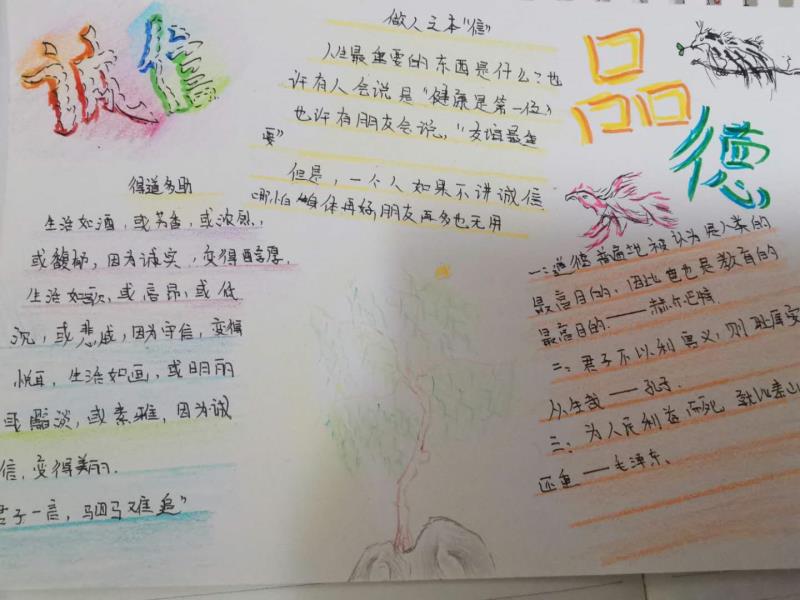 诚信
得道多助
生活如酒，或芳香，或浓烈，
或馥郁，因为诚实，变得醇厚．
生活如歌，或高昂，或低
沉，或悲戚，因为守信，变得
悦耳．生活如画，或明丽
或黯淡，或素雅，因为诚
信，变得美丽．
君子一言，驷马难追”
做人之本“信”
人生最重要的东西是什么？也
许有人会说是“健康是第一位》
也许有朋友会说，“友谊最重
要”
但是，一个人如果不讲诚信
哪怕身体再好，朋友再多也无用
品德
一：道德普遍地被认为是人类的
最高目的．因此也是教育的
最高目的．——赫尔巴特
二：君子不以利害义，则耻辱安
从生哉——孔子．
三：为人民利益而死 就比泰山
还重——毛泽东．